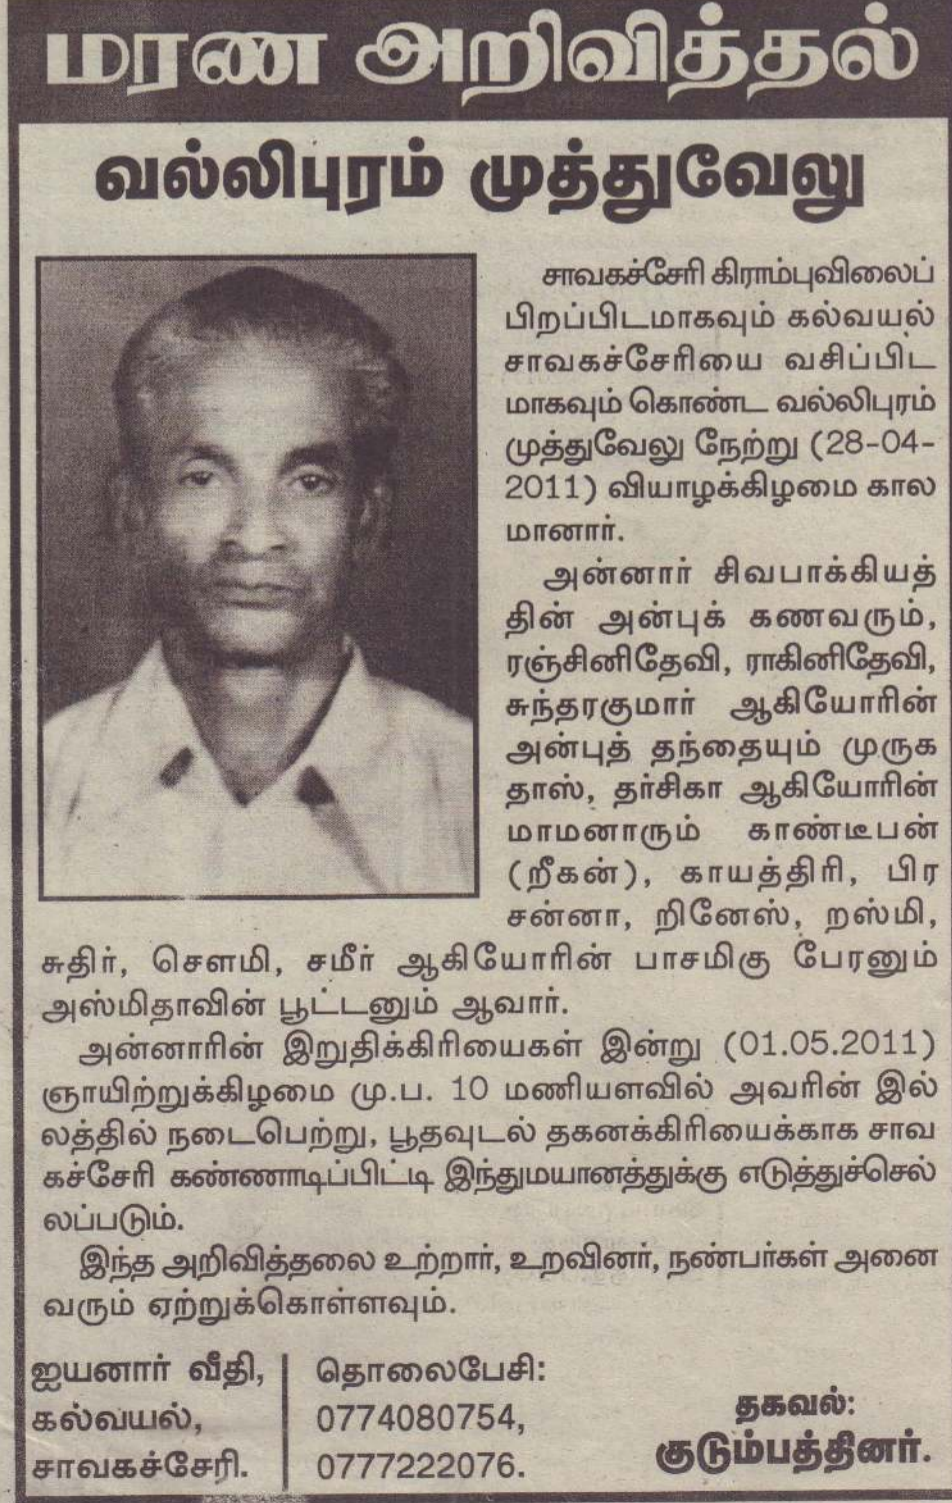 மரண அறிவித்தல்
வல்லிபுரம் முத்துவேலு
சாவகச்சேரி கிராம்புவிலைப்
பிறப்பிடமாகவும் கல்வயல்
சாவகச்சேரியை வசிப்பிட
மாகவும் கொண்ட வல்லிபுரம்
முத்துவேலு நேற்று (28-04-
2011) வியாழக்கிழமை கால
மானார்.
அன்னார் சிவபாக்கியத்
தின் அன்புக் கணவரும்,
ரஞ்சினிதேவி, ராகினிதேவி,
சுந்தரகுமார் ஆகியோரின்
அன்புத் தந்தையும் முருக
தாஸ், தர்சிகா ஆகியோரின்
மாமனாரும் காண்டீபன்
(றீகன்), காயத்திரி, பிர
சன்னா, றினேஸ், றஸ்மி,
சுதிர், சௌமி, சமீர் ஆகியோரின் பாசமிகு பேரனும்
அஸ்மிதாவின் பூட்டனும் ஆவார்.
அன்னாரின் இறுதிக்கிரியைகள் இன்று (01.05.2011)
ஞாயிற்றுக்கிழமை மு.ப. 10 மணியளவில் அவரின் இல்
லத்தில் நடைபெற்று, பூதவுடல் தகனக்கிரியைக்காக சாவ
கச்சேரி கண்ணாடிப்பிட்டி இந்துமயானத்துக்கு எடுத்துச்செல்
லப்படும்.
இந்த அறிவித்தலை உற்றார், உறவினர், நண்பர்கள் அனை
வரும் ஏற்றுக்கொள்ளவும்.
ஐயனார் வீதி,
கல்வயல்,
சாவகச்சேரி.
தொலைபேசி:
0774080754,
0777222076.
தகவல்:
குடும்பத்தினர்.